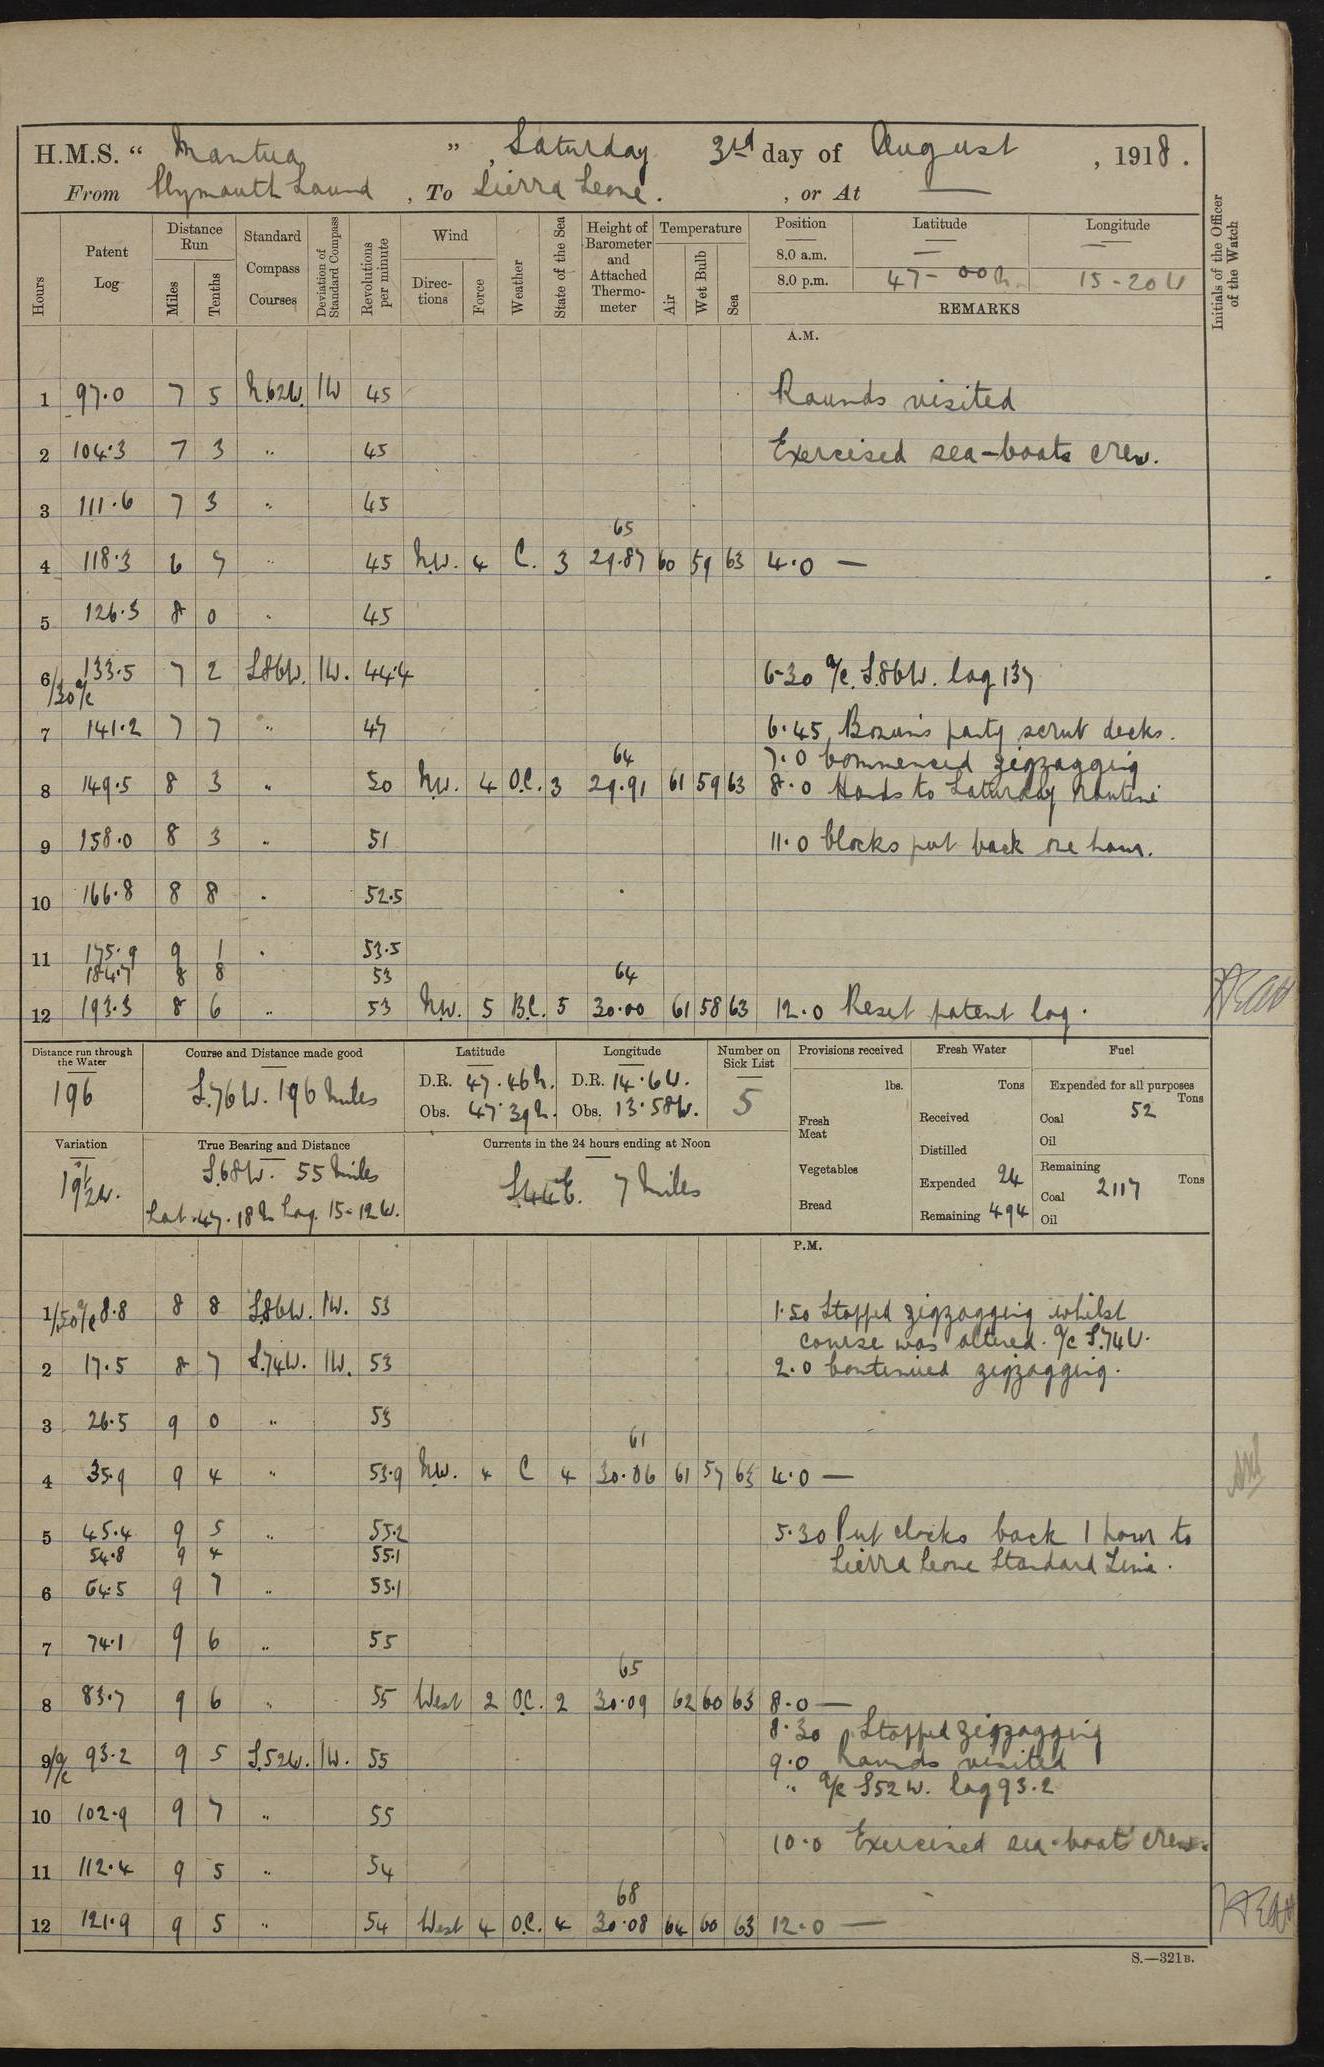 H.M.S. “ Mantua ” , Saturday 3rd day of August , 1918 .
From Plymouth Sound , To Sierra Leone . , or At —
Hours Patent Log Distance Run Miles Tenths Standard Compass Courses Deviation of Standard Compass Revolutions per minute Wind Directions Force Weather State of the Sea Height of Barometer and Attached Thermometer Temperature Air Wet Bulb Sea Position Latitude Longitude Initials of the Officer of the Watch
8.0 a.m. — —
8.0 p.m. 47-00 N. 15-20 W
REMARKS
A.M.
1 97.0 7 5 N.62W. 1W 45 Rounds visited
2 104.3 7 3 " 45 Exercised sea-boats crew.
3 111.6 7 3 " 45
65
4 118.3 6 7 " 45 N.W. 4 C. 3 29.87 60 59 63 4.0 —
5 126.3 8 0 " 45
6 133.5 7 2 S.86W. 1W. 44.4 6-30 a/c. S.86W. log 137
/30 a/c
7 141.2 7 7 " 47 6.45 Bosun's party scrub decks.
64 7.0 Commenced zigzagging
8 149.5 8 3 " 50 N.W. 4 O.C. 3 29.91 61 59 63 8.0 Hands to Saturday Routine
9 158.0 8 3 " 51 11.0 Clocks put back one hour.
10 166.8 8 8 " 52.5
11 175.9 9 1 " 53.5
184.7 8 8 53 64
12 193.3 8 6 " 53 N.W. 5 B.C. 5 30.00 61 58 63 12.0 Reset patent log.
Distance run through the Water Course and Distance made good Latitude Longitude Number on Sick List Provisions received Fresh Water Fuel
196 S.76W. 196 Miles D.R. 47.46 N. D.R. 14.6 W. 5 lbs. Tons Expended for all purposes Tons
Obs. 47.39 N. Obs. 13.58 W. Fresh Meat Received Coal 52
Variation True Bearing and Distance Currents in the 24 hours ending at Noon Distilled Oil
19½W. S.68W. 55 Miles S.44E. 7 Miles Vegetables Expended 24 Remaining Tons
Lat. 47.18 N Log. 15-12W. Coal 2117
Bread Remaining 494 Oil
P.M.
1/50 a/c 8.8 8 8 S.86W. 1W. 53 1.50 Stopped zigzagging whilst
course was altered. a/c S.74W.
2 17.5 8 7 S.74W. 1W. 53 2.0 Continued zigzagging.
3 26.5 9 0 " 53
61
4 35.9 9 4 " 53.9 N.W. 4 C 4 30.06 61 57 63 4.0 —
5 45.4 9 5 " 55.2 5.30 Put clocks back 1 hour to
54.8 9 4 55.1 Sierra Leone Standard Time.
6 64.5 9 7 " 55.1
7 74.1 9 6 " 55
65
8 83.7 9 6 " 55 West 2 O.C. 2 30.09 62 60 63 8.0 —
8.30 Stopped zigzagging
9 a/c 93.2 9 5 S.52W. 1W. 55 9.0 Rounds visited
" a/c S52W. log 93.2
10 102.9 9 7 " 55
10.0 Exercised sea-boats crew.
11 112.4 9 5 " 54
68
12 121.9 9 5 " 54 West 4 O.C. 4 30.08 64 60 63 12.0 —
S.—321B.